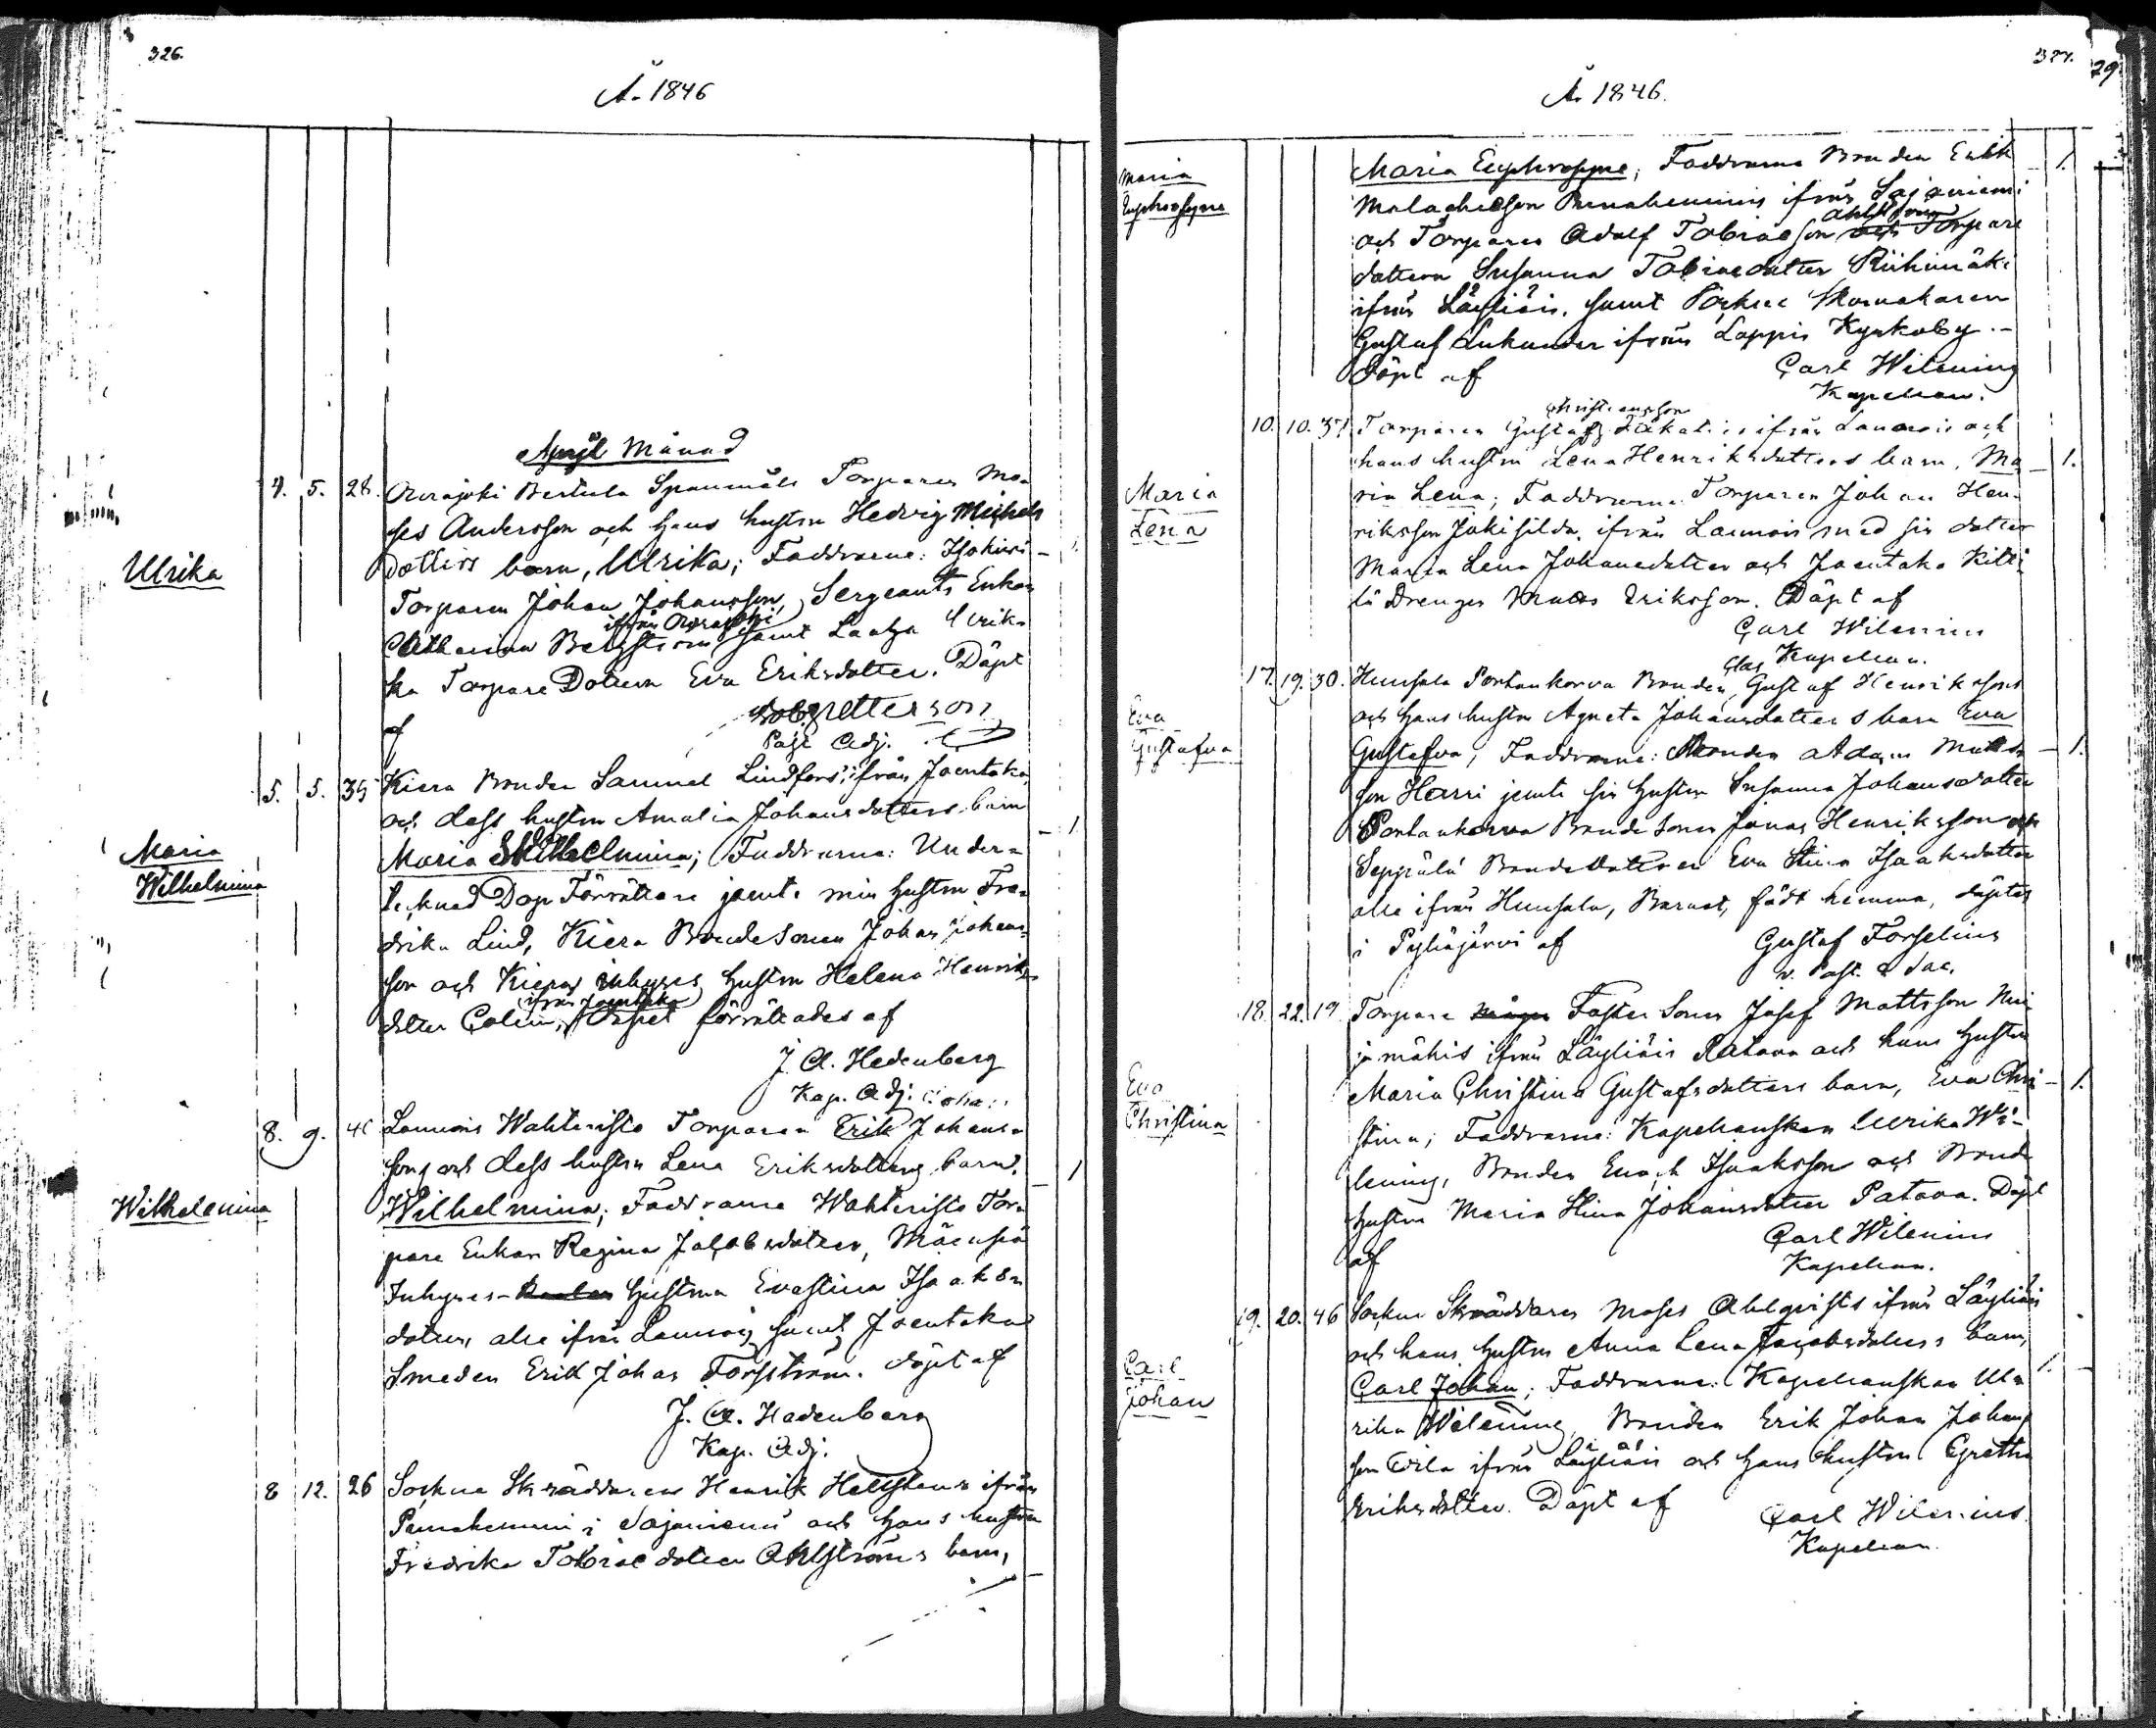 326.
Å. 1846
April Månad
Ulrika
4. 5. 28. Bertula Torparen Mo-
ses Andersson och hans hustru Hedvig Michels
dotters barn, Ulrika; Faddrarne:
Torparen Johan Johansson, Sergeants Enkan
Catharina Bergström ifrån samt Ulrik-
ka Torpare Dottren Eva Eriksdotter. Döpt
af
Past Adj.
Maria
Wilhelmina
5. 5. 35 Kiera Bonden Samuel Lindfors, ifrån Joentaka
och dess hustru Amalia Johansdotters barn
Maria Wilhelmina; Faddrarne: Under- 1
tecknad Dop Förrättare jemte min hustru Fre-
drika Lind, Kiera Bondesonen Johan Johans-
son och Kiera inhyses hustru Helena Henriks-
dotter Colin, ifrån Joentaka förrättades af
J. A. Hedenberg
Kap. Adj.
Wilhelmina
8. 9. Lannois Wahteristo Torparen Erik Johans-
sons och dess hustru Lena Eriksdotters barn,
Wilhelmina; Faddrarne Wahteristo Tor- 1
pare Enkan Regina Jacobsdotter,
Inhyses- hustrun Evastina Isaaks-
dotter, alle ifrån Lannois samt Joentaka
Smeden Erik Johan Forsström. döpt af
J. A. Hedenberg
Kap. Adj.
8 12. 26 Sockne Skräddaren Henrik ifrån
i Sajaniemi och hans hustru
Fredrika Tobiaedotter Ahlströms barn,
327.
29
Å. 1846.
Maria
Euphrosyne
Maria Euphrosyne; Faddrarne Bonden 1.
Malachiesson ifrån Sajaniemi
och Torparen Adolf Tobiaeson Ahlström Torpare
dottern Susanna Tobiaedotter Riihimäki
ifrån Läyliäis, samt Sockne Skomakaren
Gustaf ifrån Loppis Kyrkoby.-
Döpt af Carl Wilenius
Kapellan.
Maria
Lena
10. 10. 37. Torparen Gustaf Christiansson ifrån Lannois och
hans hustru Lena Henriksdotters barn, Ma- 1.
ria Lena; Faddrarne Torparen Johan Hen-
riksson Jokisilda, ifrån Lannois med sin dotter
Maria Lena Johansdotter och Joentaka
Drengen Matts Eriksson. Döpt af
Carl Wilenius
Kapellan.
Eva
Gustafva
17. 19. 30. Hunsala Portankorva Bonden Gustaf Henrikssons
och hans hustru Agneta Johansdotters barn Eva
Gustafva; Faddrarne: Bonden Adam Matts- 1.
son Harri jemte sin hustru Susanna Johansdotter
Portankorva Bondesonen Jonas Henriksson och
Seppälä Bondedottren Eva Stina Isaksdotter
alle ifrån Hunsala, Barnet, födt hemma, döptes
i Pyhäjärvi af Gustaf Forselius
v. Past. & Sac.
Eva
Christina
18. 22. 19 Torpare Foster Sonen Josef Mattsson
mäkis ifrån Läyliäis Patava och hans hustru
Maria Christina Gustafsdotters barn, Eva Chri- 1.
stina; Faddrarne: Kapellanskan Ulrika Wi-
lenius, Bonden Enoch Isaaksson och Bonde
hustrun Maria Stina Johansdotter Patava. Döpt
af Carl Wilenius
Kapellan.
Carl
Johan
19. 20. 46 Sockne Skräddaren Moses Ahlqvists ifrån Läyliäis
och hans hustru Anna Lena Jacobsdotters barn,
Carl Johan; Faddrarne: Kapellanskan Ul- 1.
rika Wilenius, Bonden Erik Johan Johans-
son ifrån Läyliäis och hans hustru Gretha
Eriksdotter. Döpt af Carl Wilenius
Kapellan